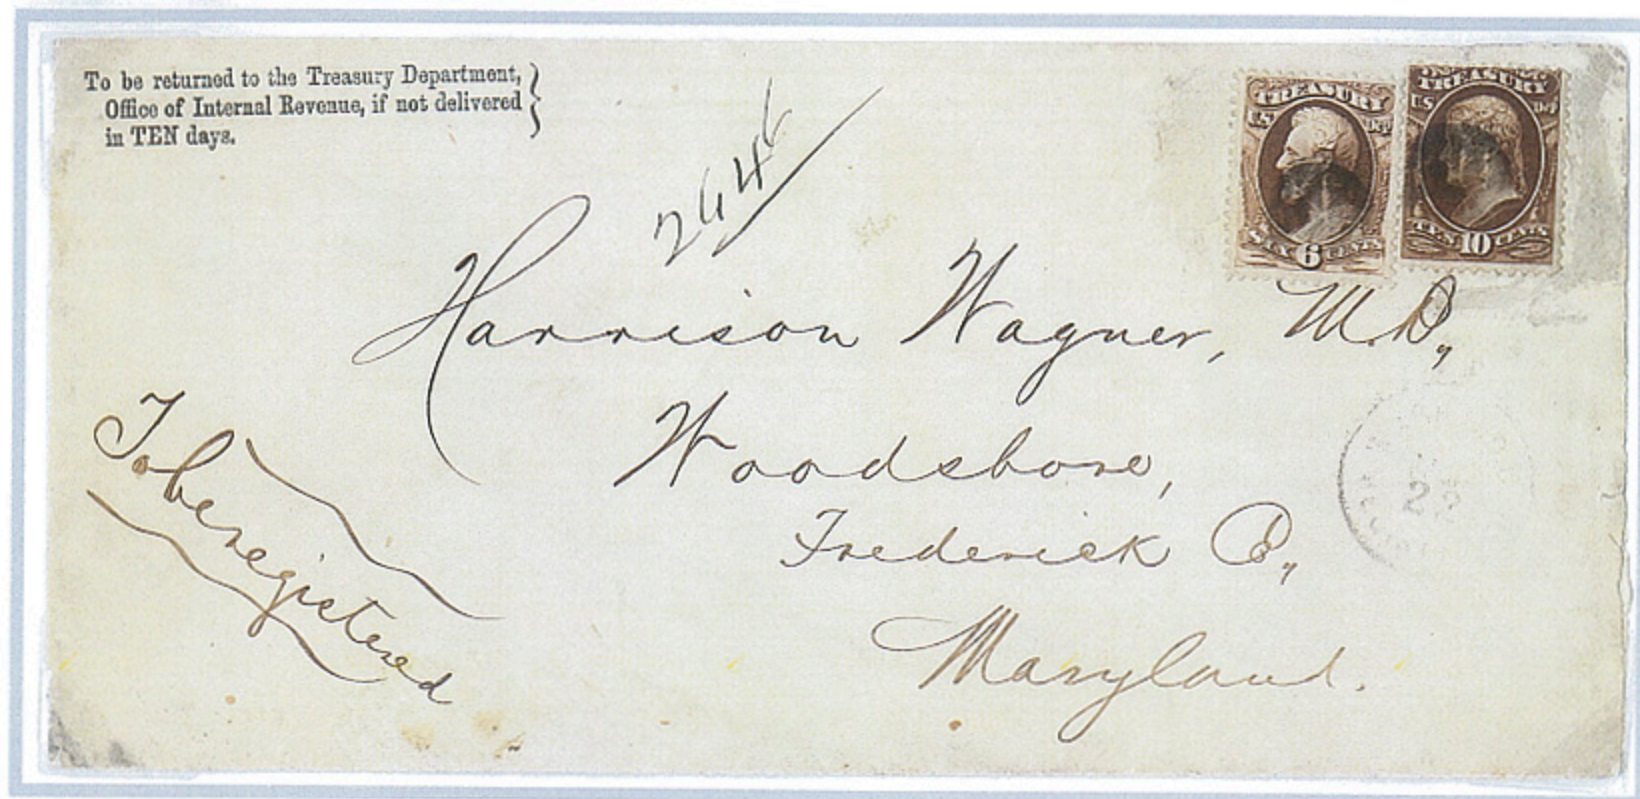 To be returned to the Treasury Department,
Office of Internal Revenue, if not delivered
in TEN days.
TREASURY
U.S. DEP
SIX 6 CENTS
TREASURY
U.S. DEP
TEN 10 CENTS
Harrison Wagner, M.D.,
Woodsboro,
Frederick Co.,
Maryland.
To be registered
22